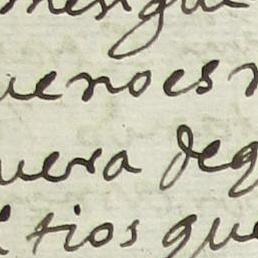 uenoes
uera deq
tios que